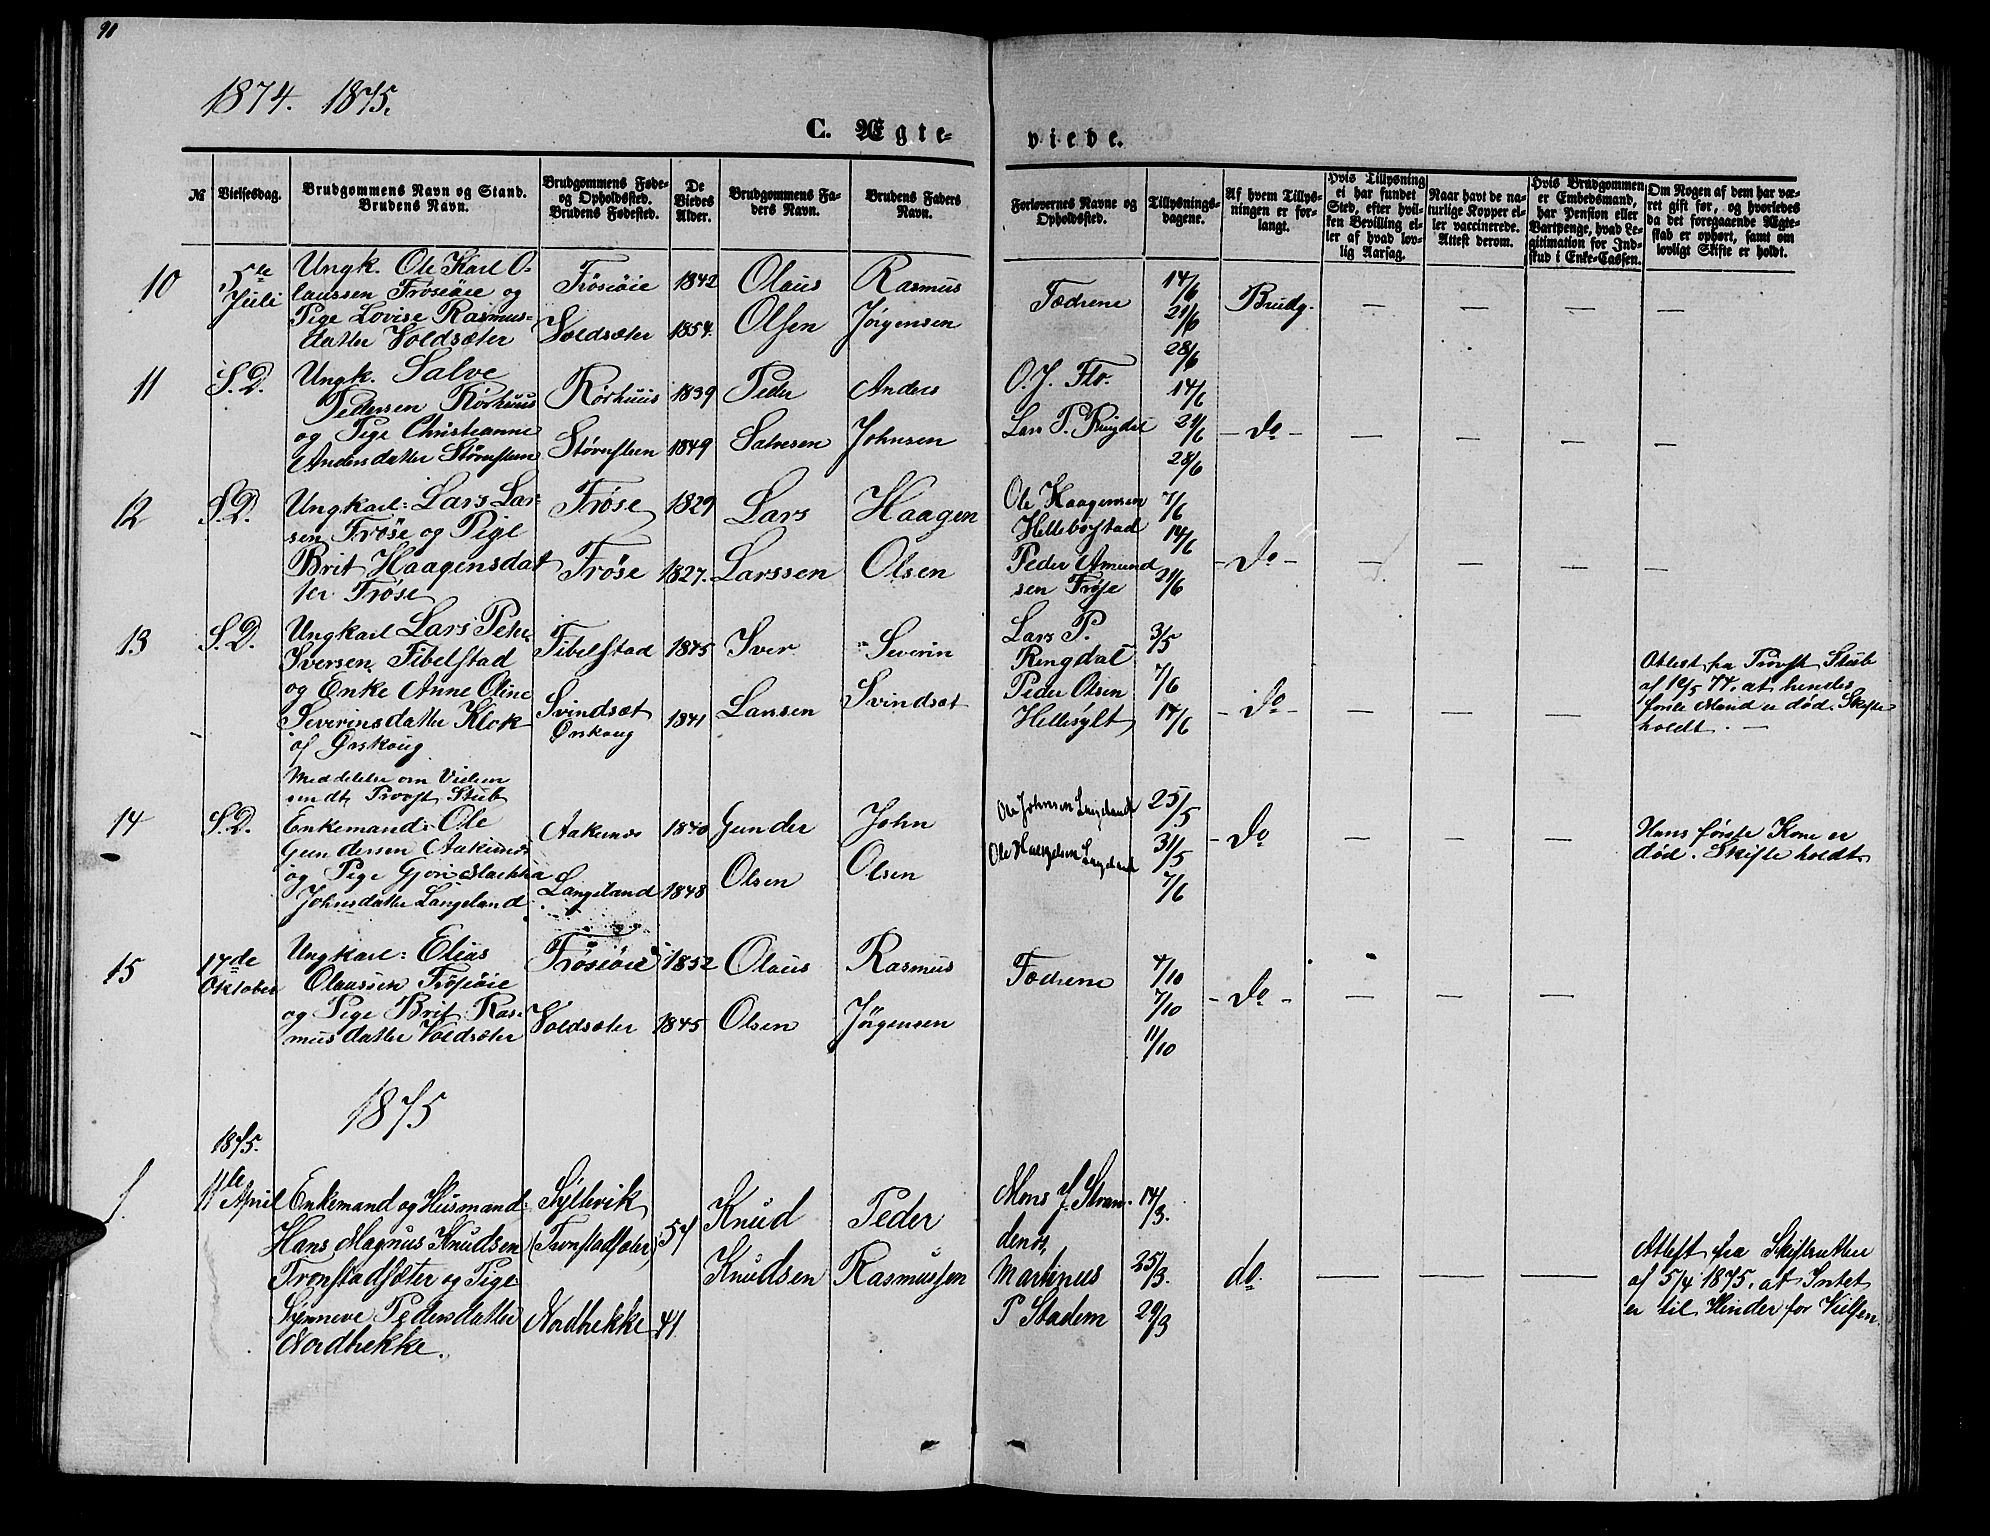 90
1874. 1875.
C. Ægte-
viede.
No
Vielsesdag.
Brudgommens Navn og Stand.
Brudens Navn.
Brudgommens Føde-
og Opholdssted.
Brudens Fødested.
De
Viedes
Alder.
Brudgommens Fa-
ders Navn.
Brudens Faders
Navn.
Forlovernes Navne og
Opholdssted.
Tillysnings-
dagene.
Af hvem Tillys-
ningen er for-
langt.
Hvis Tillysning
ei har fundet
Sted, efter hvil-
ken Bevilling el-
ler af hvad lov-
lig Aarsag.
Naar havt de na-
turlige Kopper el-
ler vaccinerede.
Attest derom.
Hvis Brudgommen
er Embedsmand,
har Pension eller
Vartpenge, hvad Le-
gitimation for Ind-
skud i Enke-Cassen.
Om Nogen af dem har væ-
ret gift før, og hvorledes
da det foregaaende Ægte-
skab er ophørt, samt om
lovligt Skifte er holdt.
10
5te
Juli
Ungk. Ole Karl O-
laussen Frøsöie og
Pige Lovise Rasmus-
datter Voldsæter
Frøsöie
Voldsæter
1842
1854.
Olaus
Olsen
Rasmus
Jørgensen
Fædrene
14/6
21/6
28/6
Brudg.
— — — —
11
S. D.
Ungk. Salve
Pedersen Rørhuus
og Pige Christianne
Andersdatter Størefteen
Rørhuus
1839
1849
Peder
Salvesen
Anders
Johnsen
O. J. Flo.
Lars P. Ringdal
14/6
21/6
28/6
- do -
— — — —
12
S. D.
Ungkarl: Lars Lar-
sen Frøse og Pige
Brit Haagensdat
ter Frøse
Frøse
Frøse
1829
1827.
Lars
Larssen
Haagen
Olsen
Ole Haagensen
Hellebostad
Peder Amund
sen Frøse
7/6
14/6
21/6
- do -
— — — —
13
S. D.
Ungkarl Lars Peter
Iversen Fibelstad
og Enke Anne Oline
Severinsdatter Klok
af Ørskoug
Meddelelse om Vielsen
sendt Provst Stub
Fibelstad
Svindsæt
Ørskoug
1845
1841
Iver
Larsen
Severin
Svindsæt
Lars P.
Ringdal
Peder Olsen
Hellesylt
3/5
7/6
14/6
- do -
— — —
Attest fra Provst Stub
af 12/5 74. at hendes
første Mand er død. Skifte
holdt. —
14
S. D.
Enkemand: Ole
Gundersen Aakernes
og Pige Gjøri
Johnsdatter Langeland
Aakernes
Langeland
1840
1848
Gunder
Olsen
John
Olsen
Ole Johnsen Langeland
Ole Langeland
25/5
31/5
7/6
- do
— — —
Hans første Kone er
død. Skifte holdt
15
17de
Oktober
Ungkarl: Elias
Olaussen Frøsöie
og Pige Brit Ras-
musdatter Voldsæter
Frøsöie
Voldsæter
1852
1845
Olaus
Olsen
Rasmus
Jørgensen
Fædrene
4/10
7/10
11/10
- do -
— — —
1875
1875.
1.
11te April
Enkemand og Husmand
Hans Magnus Knudsen
Tronstadsæter og Pige
Synneve Pedersdatter
Nordhekke.
Syltevik
(Tronstadsæter)
Nordhekke
54
41
Knud
Knudsen
Peder
Rasmussen
Mons J. Stran-
denes
Martinus
P Stadem
14/3.
25/3.
29/3
do.
— — —
Attest fra Skifteretten
af 5/4 1875. at Intet
er til Hinder for Vielsen.